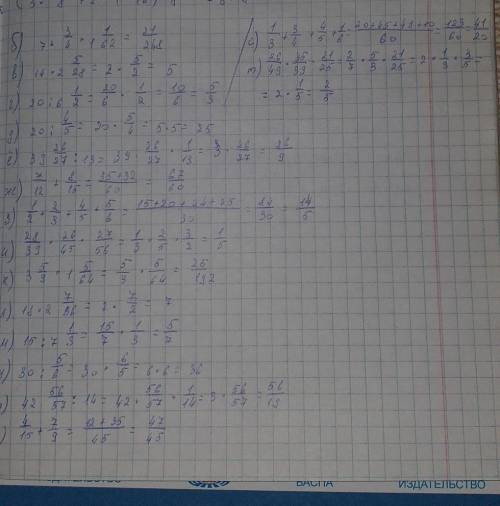 б) 7 · 3/4 · 1 1/62 = 21/248
в) 14 · 2 5/28 = 2 · 5/2 = 5
г) 20 : 6 · 1/2 = 20/6 · 1/2 = 10/6 = 5/3
д) 20 : 6/5 = 30 · 5/6 = 5 · 5 = 25
ё) 39 26/27 : 13 = 39 · 26/27 · 1/13 = 3 · 26/27 = 26/9
ж) 7/12 + 8/15 = 35+32/60 = 67/60
з) 1/2 + 2/3 + 4/5 + 5/6 = 15+20+24+25/30 = 84/30 = 14/5
и) 28/39 · 26/45 · 27/56 = 1/3 · 2/5 · 3/2 = 1/5
к) 3 5/9 · 1 5/64 = 5/3 · 5/64 = 25/192
л) 16 · 2 7/36 = 2 · 7/2 = 7
м) 15 : 7 1/3 = 15/7 · 1/3 = 5/7
30 : 5/6 = 30 · 6/5 = 6 · 6 = 36
42 56/57 : 14 = 42 · 56/57 · 1/14 = 3 · 56/57 = 56/19
4/15 + 7/9 = 12+35/45 = 47/45
с) 1/3 + 3/4 + 4/5 + 1/6 = 20+45+48+10/60 = 123/60 = 41/20
т) 26/49 · 35/39 · 21/25 = 2/7 · 5/3 · 21/25 = 2 · 1/3 · 3/5 =
= 2 · 1/5 = 2/5
ИЗДАТЕЛЬСТВО